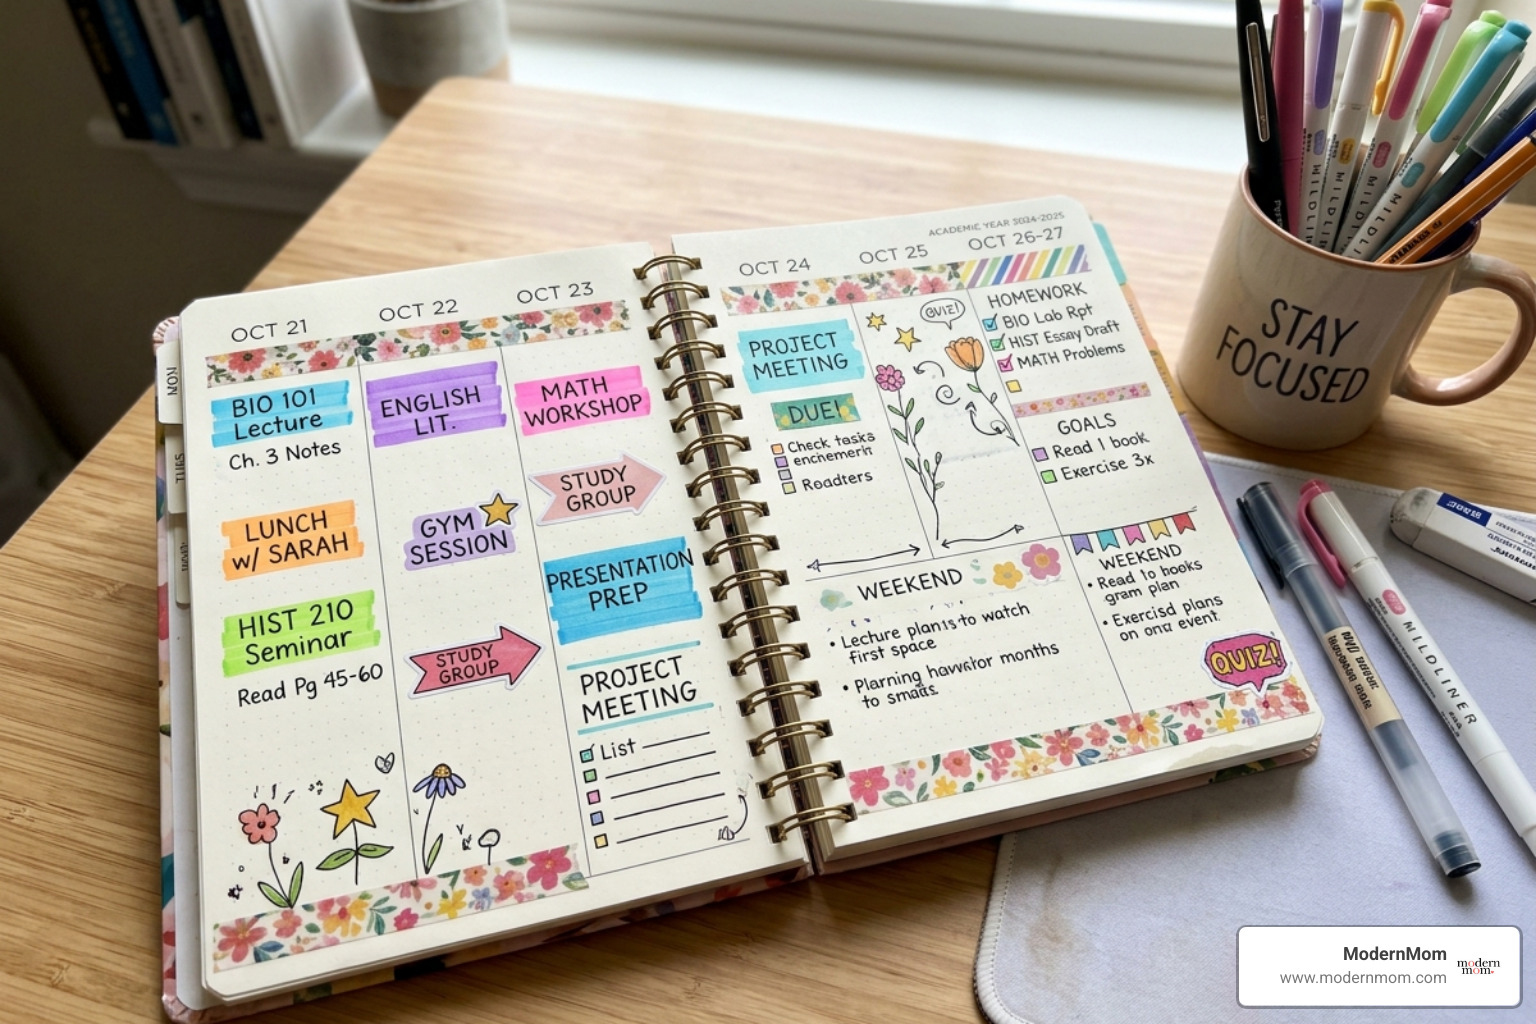 OCT 21
OCT 22
OCT 23
BIO 101
Lecture
Ch. 3 Notes
LUNCH
w/ SARAH
HIST 210
Seminar
Read Pg 45-60
ENGLISH
LIT.
GYM
SESSION
STUDY
GROUP
MATH
WORKSHOP
STUDY
GROUP
PRESENTATION
PREP
PROJECT
MEETING
List
MON
TUES
ACADEMIC YEAR 2024-2025
OCT 24
OCT 25
OCT 26-27
PROJECT
MEETING
DUE!
Check tasks
enchemerit
Roadters
QUIZ!
HOMEWORK
BIO Lab Rpt
HIST Essay Draft
MATH Problems
GOALS
Read 1 book
Exercise 3x
WEEKEND
• Lecture plan1s to watch
first space
• Planning havvior months
to smats
WEEKEND
• Read to hooks
gram plan
• Exercisd plans
on onz event.
QUIZ!
STAY
FOCUSED
MILDLINER
ModernMom
www.modernmom.com
modern
mom.